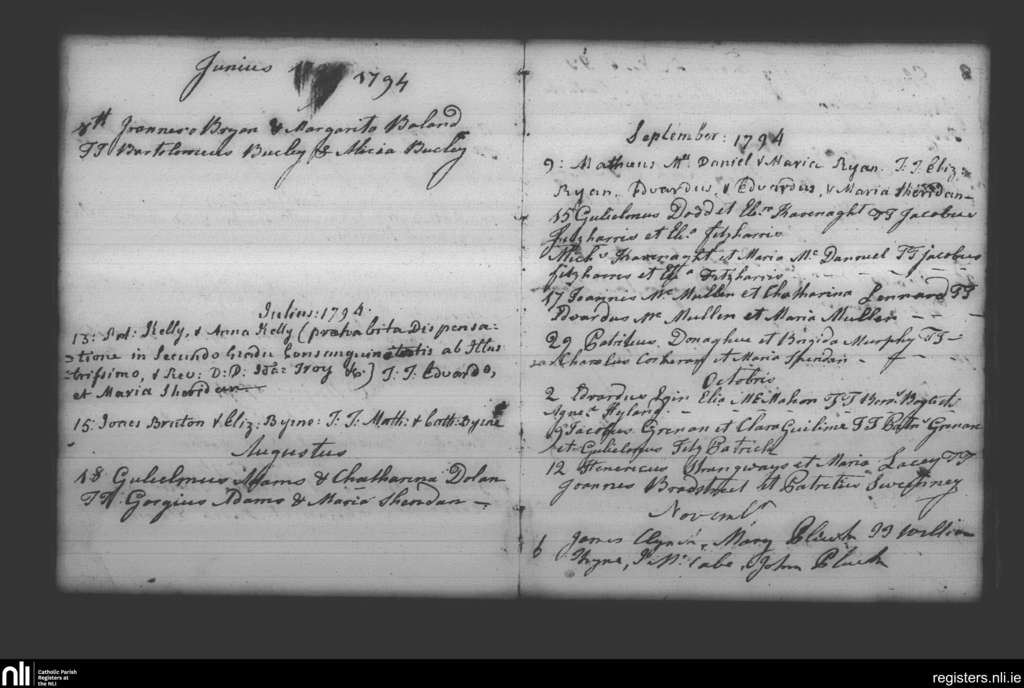 Junius 1794
8th Joannes Bryan & Margarita Boland
TT Bartolomeus Bucley & Alicia Bucley
Julius: 1794
13: Pat: Kelly, & Anna Kelly (prohabita Dispensa-
tione in Secundo Gradu Consanguinetatis ab Illus
-trissimo, & Rev: D: D: Troy &c) T: T: Edvardo,
et Maria Sheridan
15: Jones Bruton & Eliz: Byrne: T: T: Math: & Cath: Byrne
Augustus
18 Gulielmus Adams & Chatharina Dolan
TT Gorgius Adams & Maria Sheridan
September: 1794
9: Matheus Mc Daniel & Maria Ryan. T. T. Eliz:
Ryan, Edvardus, & Edvardus, & Maria Sheridan
15 Gulielmus Dodd et Eliz. Kavenaght TT Jacobus
Fitzharris et Eliz. Fitzharris
Michs Kavenaght et Maria Mc Danouel TT Jacobus
fitzharres et Fitzharris
17 Joannes Mc Mullen et Chatharina Lennard TT
Edvardus Mc Mullen et Maria Muller
29 Patritius, Donaghue et Brigida Murphy TT
Charolus Corheran et Maria Sheridan
Octobris
2 Edvardus Egin Eliz Mc Mahon TT
Hyland
9 Jacobus Grenan et Clara TT Grenan
et Gulielmus Fitz Patrick
12 Henericus Strangways et Maria Lacey TT
Joannes Bradstreet et Patretius Sweehney
Novembr
6 James & Mary Pluck TT William
Thyne, Mc Cabe, & John Pluck
nli
Catholic Parish
Registers at
the NLI
registers.nli.ie